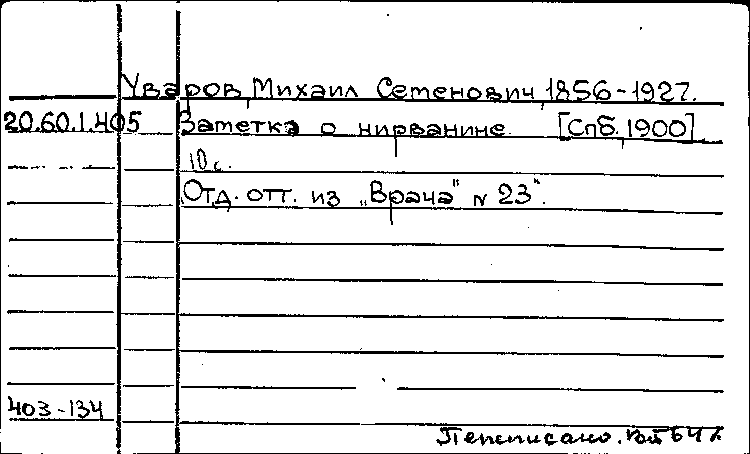 Уваров, Михаил Семенович, 1856-1927.
20.60.1.405 Заметка о нирванине. [Спб., 1900]
10 с.
Отд. отт. из „Врача" № 23".
403-134
Переписано.